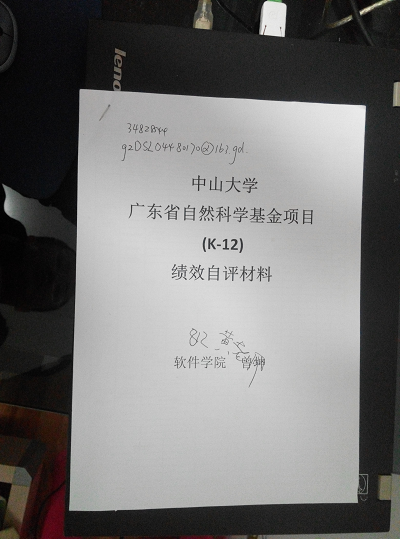 leno
3482844
gzDSL04480170@163.gd.
中山大学
广东省自然科学基金项目
(K-12)
绩效自评材料
812 黄
软件学院 曾